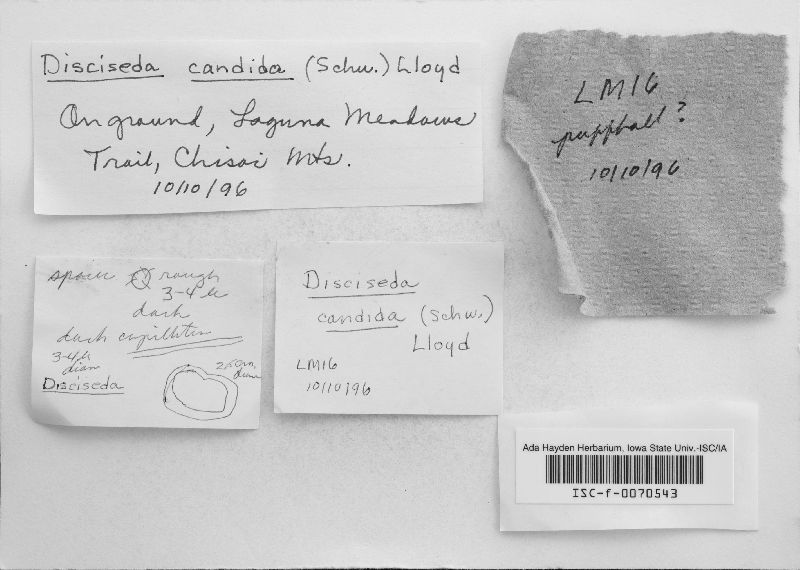 Disciseda candida (Schw.) Lloyd
On ground, Laguna Meadows
Trail, Chisoi Mts.
10/10/96
LM16
puffball?
10/10/96
spores rough
3-4 µ
dark
dark capillitium
3-4 µ
diam
Disciseda
diam
Disciseda
candida (Schw.)
Lloyd
LM16
10/10/96
Ada Hayden Herbarium, Iowa State Univ.-ISC/IA
ISC-f-0070543